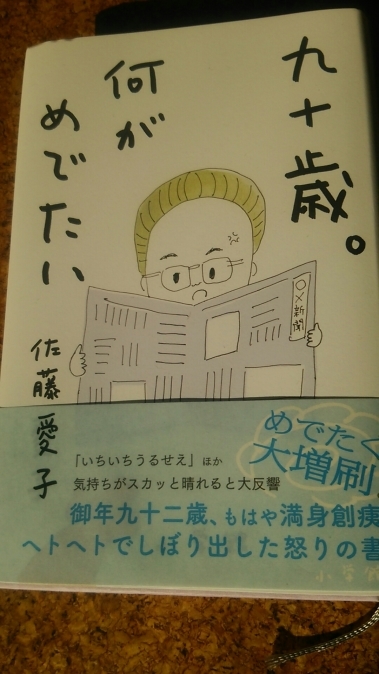 九十歳。
何が
めでたい
佐藤愛子
〇×新聞
めでたく
大増刷
「いちいちうるせえ」ほか
気持ちがスカッと晴れると大反響
御年九十二歳、もはや満身創痍
ヘトヘトでしぼり出した怒りの書
小学館